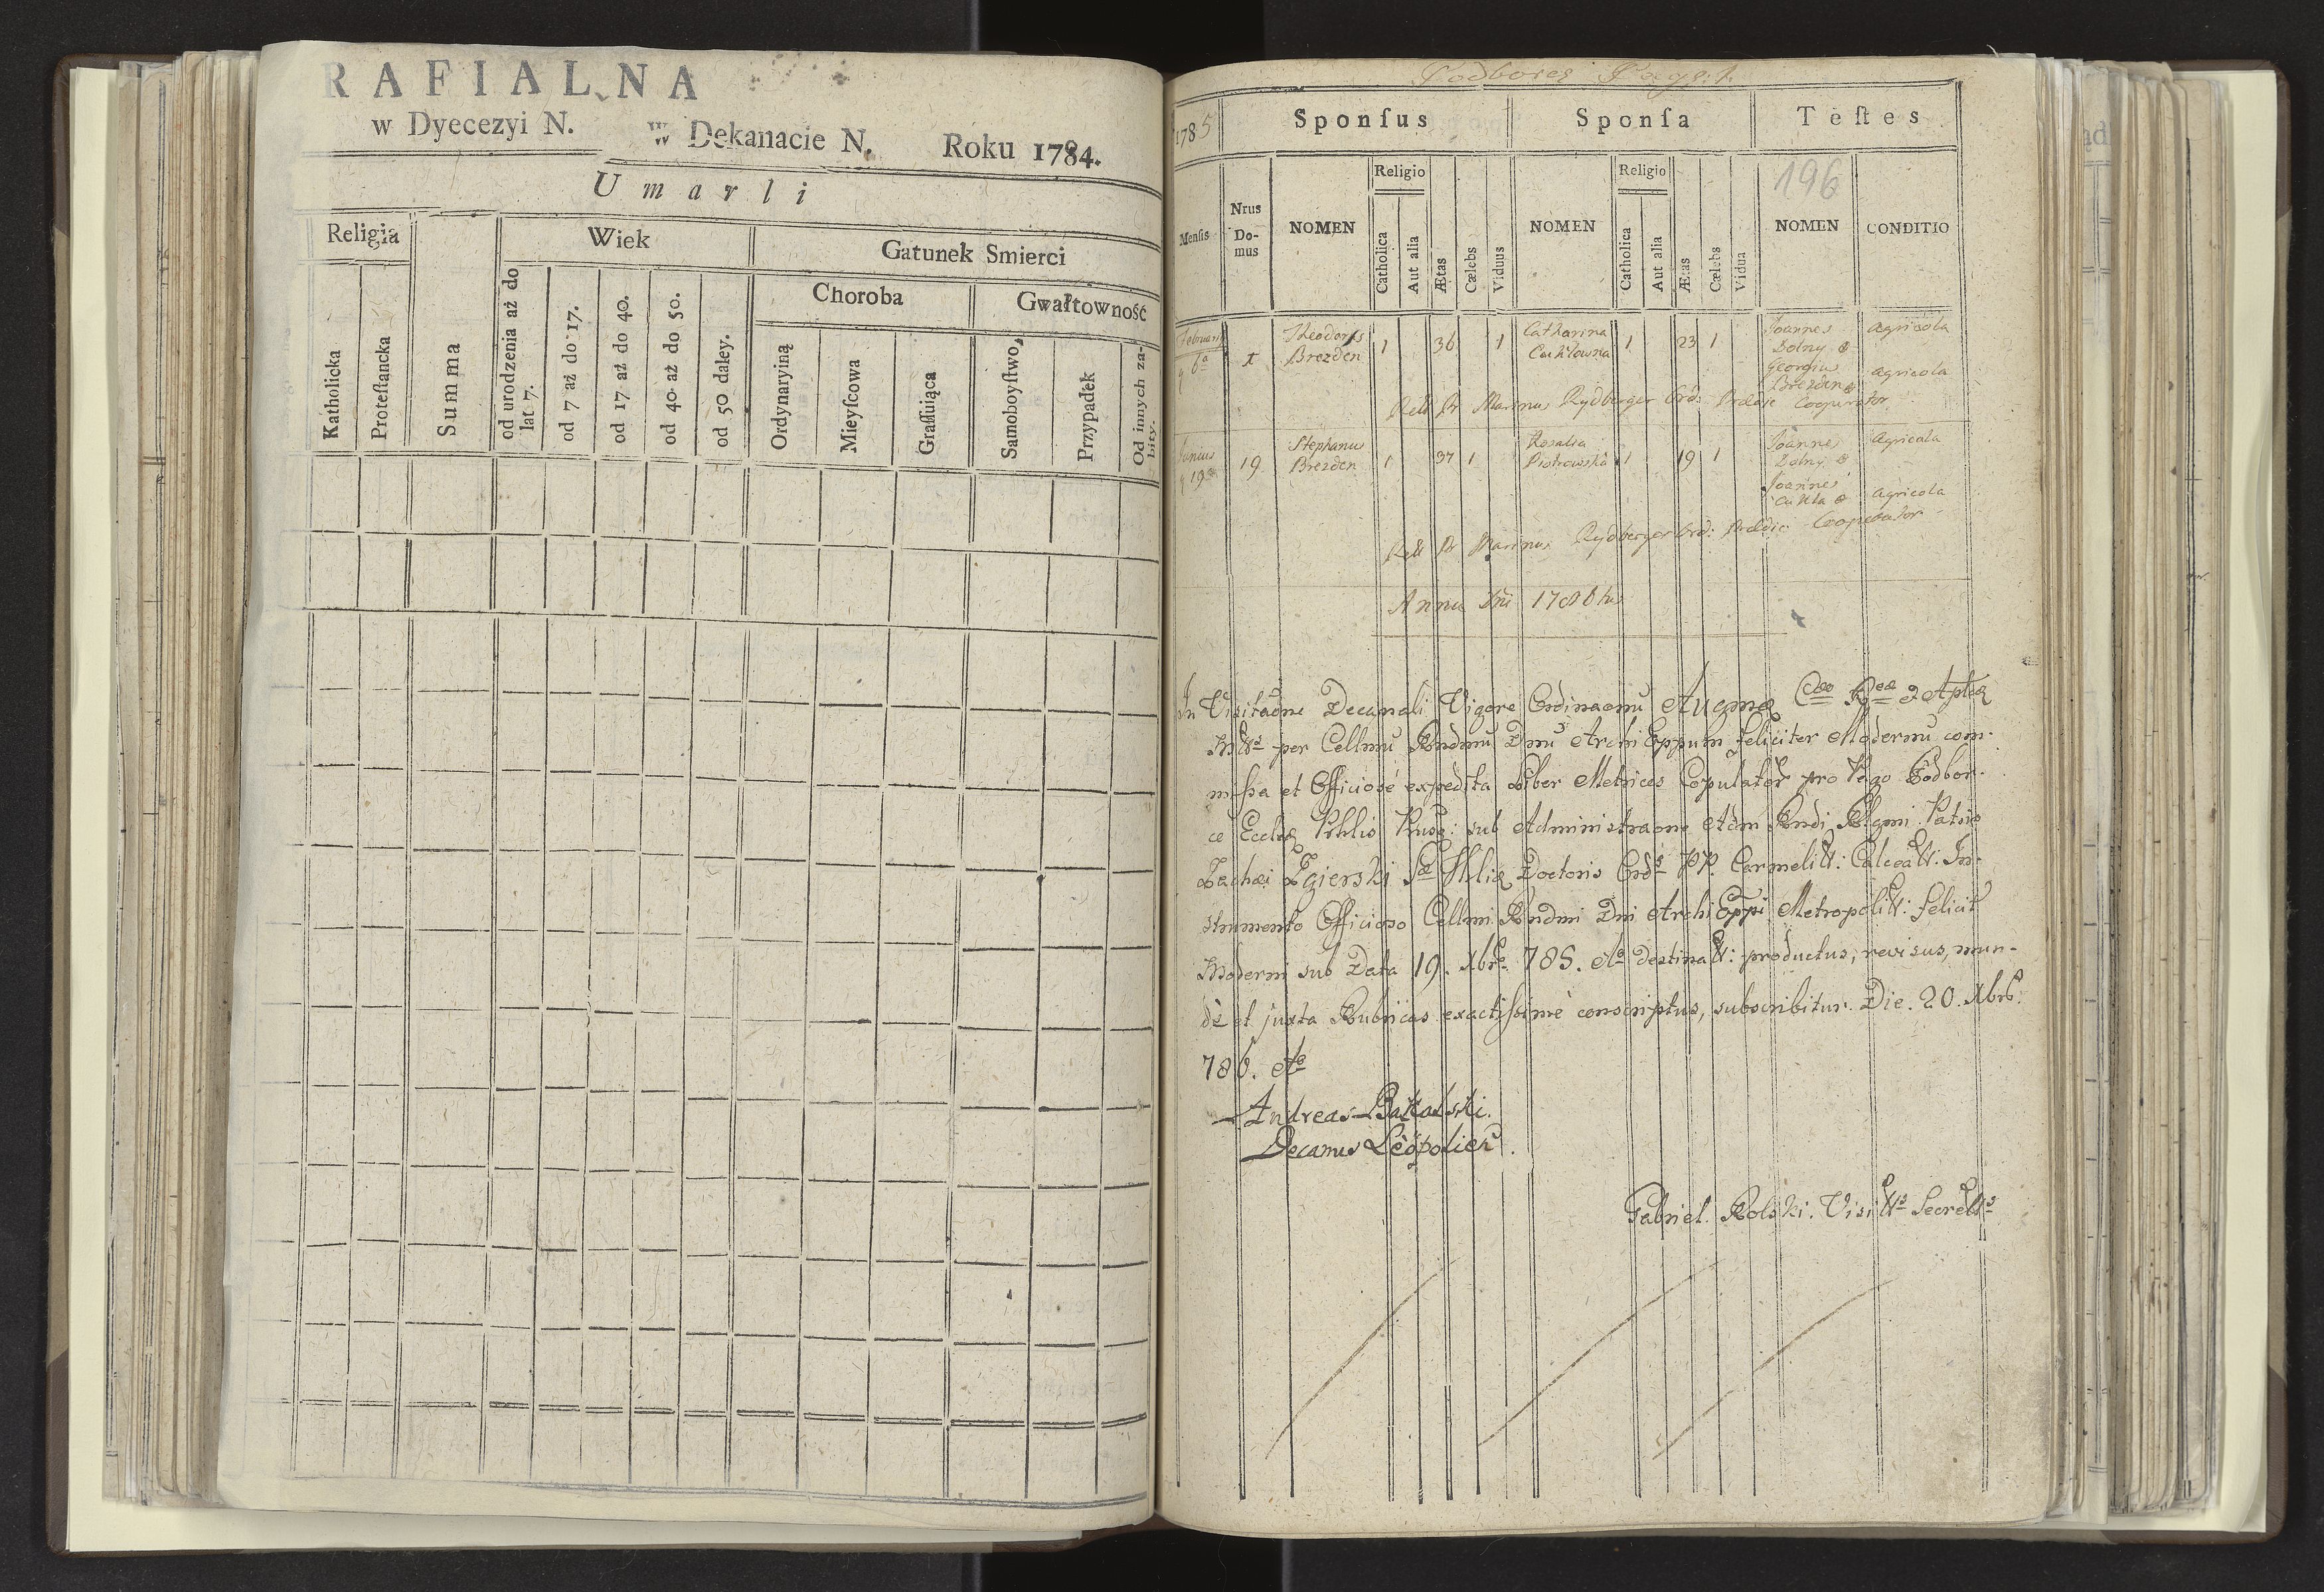 RAFIALNA
w Dyecezyi N. w Dekanacie N. Roku 1784.
Umarli
Religia
Wiek
Gatunek Smierci
Choroba
Gwałtowność
Katholicka
Proteſtancka
Summa
od urodzenia aż do lat 7.
od 7 aż do 17.
od 17 aż do 40.
od 40. aż do 50.
od 50 daley.
Ordynaryiną
Mieyſcowa
Graſſuiąca
Samoboyſtwo
Przypadek
Od innych za-
bity.
1785 Sponſus Sponſa Teſtes
196
Menſis
Nrus
Do-
mus
NOMEN
Religio
Catholica
Aut alia
Ætas
Cælebs
Viduus
NOMEN
Religio
Catholica
Aut alia
Ætas
Cælebs
Vidua
NOMEN
CONDITIO
Februarii 6a
1
Theodorus
Brezden
1 36 1
Catharina
1 23 1
Joannes
Dolny &
Georgius
Brezden
Agricola
Agricola
Marinus Rydberger Ord: Cooperator
Junius 19
19
Stephanus
Brezden
1 37 1
Rosalia
Piotrowska
1 19 1
Joannes
Dolny &
Joannes
Agricola
Agricola
Marinus Rydberger Ord: Cooperator
Anno Dni 1786tus
In Visitaone Decanali Vigore Ordinaonu
per Cellmu Rndmu Dnu Archi Eppum feliciter Modernu com-
missa et Officiosè expedita Liber Metrices Copulator pro Pago Podbor-
ce Eccliæ sub Administraone Adm Rndi Patris
Zachæi Zgierski Doctoris Ord: PP. Carmelitt: Calceatt: In-
strumento Officioso Cellmi Rndmi Dni Archi Eppi Metropolitt: felicit
Moderni sub Data 19. Xbris 785. Ao destinatt: productus, revisus, mun-
dè et juxta Rubricas exactissimè conscriptus, subscribitur. Die. 20. Xbris
786. Ao
Andreas
Decanus Leopolien.
Gabriel Rolski.